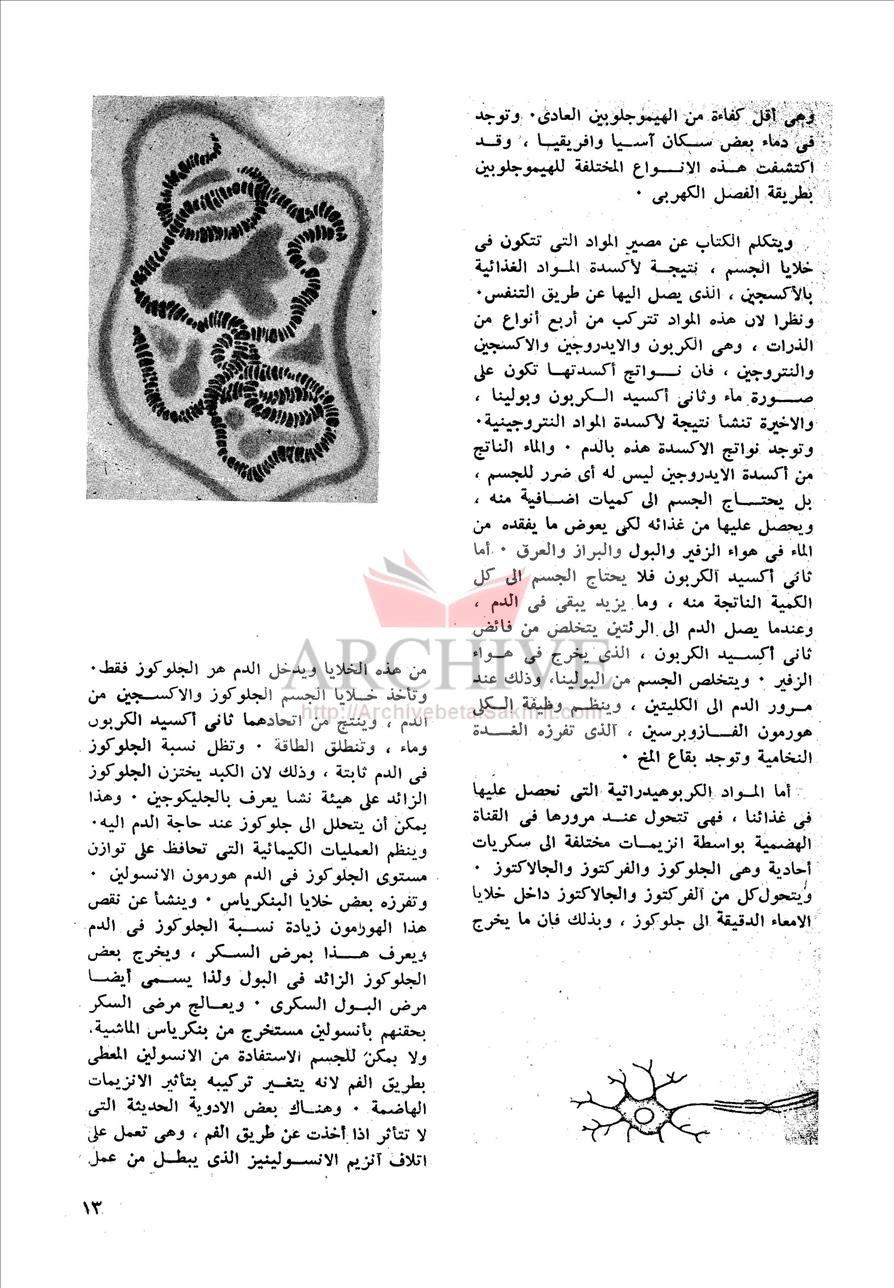 وهى أقل كفاءة من الهيموجلوبين العادى٠ وتوجد
فى دماء بعض سكان آسيا وافريقيا ، وقد
اكتشفت هذه الانواع المختلفة للهيموجلوبين
بطريقة الفصل الكهربى ٠
ويتكلم الكتاب عن مصير المواد التى تتكون فى
خلايا الجسم ، نتيجة لأكسدة المواد الغذائية
بالأكسجين ، الذى يصل اليها عن طريق التنفس٠
ونظرا لان هذه المواد تتركب من أربع أنواع من
الذرات ، وهى الكربون والايدروجين والاكسجين
والنتروجين ، فان نواتج أكسدتها تكون على
صورة ماء وثانى أكسيد الكربون وبولينا ،
والاخيرة تنشأ نتيجة لأكسدة المواد النتروجينية٠
وتوجد نواتج الاكسدة هذه بالدم ٠ والماء الناتج
من أكسدة الايدروجين ليس له أى ضرر للجسم ،
بل يحتاج الجسم الى كميات اضافية منه ،
ويحصل عليها من غذائه لكى يعوض ما يفقده من
الماء فى هواء الزفير والبول والبراز والعرق ٠ أما
ثانى أكسيد الكربون فلا يحتاج الجسم الى كل
الكمية الناتجة منه ، وما يزيد يبقى فى الدم ،
وعندما يصل الدم الى الرئتين يتخلص من فائض
ثانى أكسيد الكربون ، الذى يخرج فى هواء
الزفير ٠ ويتخلص الجسم من البولينا، وذلك عند
مرور الدم الى الكليتين ، وينظم وظيفة الكلى
هورمون الفازوبرسين ، الذى تفرزه الغدة
النخامية وتوجد بقاع المخ ٠
أما المواد الكربوهيدراتية التى نحصل عليها
فى غذائنا ، فهى تتحول عند مرورها فى القناة
الهضمية بواسطة انزيمات مختلفة الى سكريات
أحادية وهى الجلوكوز والفركتوز والجالاكتوز ٠
ويتحول كل من الفركتوز والجالاكتوز داخل خلايا
الامعاء الدقيقة الى جلوكوز ، وبذلك فان ما يخرج
من هذه الخلايا ويدخل الدم هر الجلوكوز فقط٠
وتأخذ خلايا الجسم الجلوكوز والاكسجين من
الدم ، وينتج من اتحادهما ثانى أكسيد الكربون
وماء ، وتنطلق الطاقة ٠ وتظل نسبة الجلوكوز
فى الدم ثابتة ، وذلك لان الكبد يختزن الجلوكوز
الزائد على هيئة نشا يعرف بالجليكوجين ٠ وهذا
يمكن أن يتحلل الى جلوكوز عند حاجة الدم اليه٠
وينظم العمليات الكيمائية التى تحافظ على توازن
مستوى الجلوكوز فى الدم هورمون الانسولين ٠
وتفرزه بعض خلايا البنكرياس ٠ وينشأ عن نقص
هذا الهورامون زيادة نسبة الجلوكوز فى الدم
ويعرف هذا بمرض السكر ، ويخرج بعض
الجلوكوز الزائد فى البول ولذا يسمى أيضا
مرض البول السكرى ٠ ويعالج مرضى السكر
بحقنهم بأنسولين مستخرج من بنكرياس الماشية٠
ولا يمكن للجسم الاستفادة من الانسولين المعطى
بطريق الفم لانه يتغير تركيبه بتأثير الانزيمات
الهاضمة ٠ وهناك بعض الادوية الحديثة التى
لا تتأثر اذا أخذت عن طريق الفم ، وهى تعمل على
اتلاف آنزيم الانسولينيز الذى يبطل من عمل
١٣
ARCHIVE
http://Archivebeta.Sakhrit.com